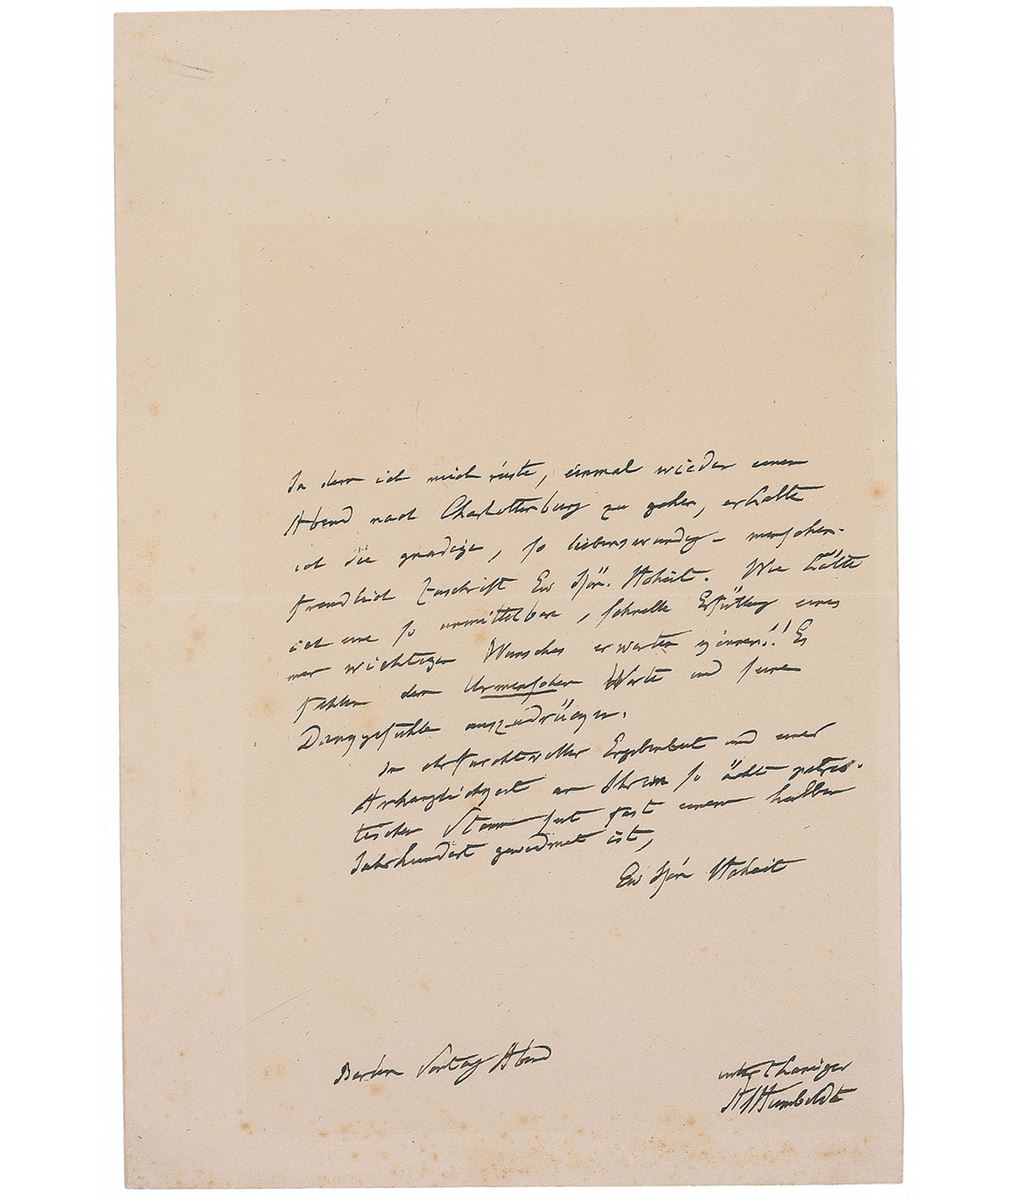 In dem ich mich rüste, einmal wieder einen
Abend nach Charlottenburg zu gehen, erhalte
ich die gnädige, so liebenswürdig-menschen-
freundlich Zuschrift Ew Kön. Hoheit. Wie hätte
ich eine so unmittelbare, schnelle Erfüllung eines
mir wichtigen Wunsches erwarten können!! Es
fehlen dem Urmenschen Worte um seine
Dankgefühle auszudrücken.
In ehrfurchtvoller Ergebenheit und einer
Anhänglichkeit an Ihren so ächt patrio-
tischen Stamm seit fast einem halben
Jahrhundert gewidmet ist,
Ew Kön Hoheit
Berlin Abend
unterthäniger
AvHumboldt